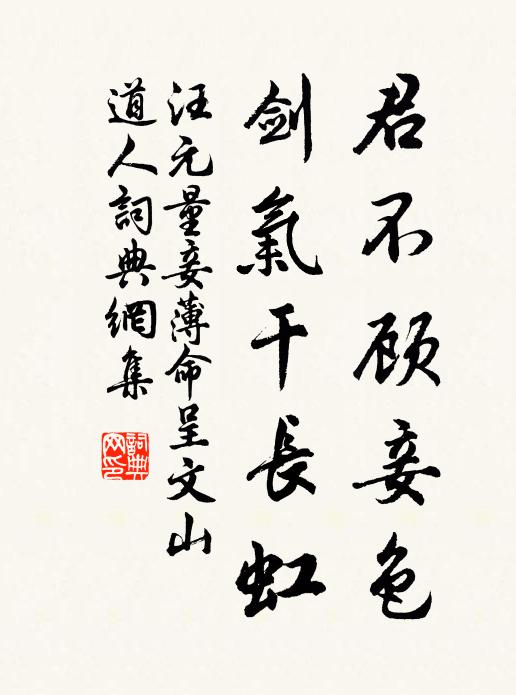 君不顾妾色
剑氣干長虹
汪元量妾薄命呈文山
道人詞典網集
詞典
网印